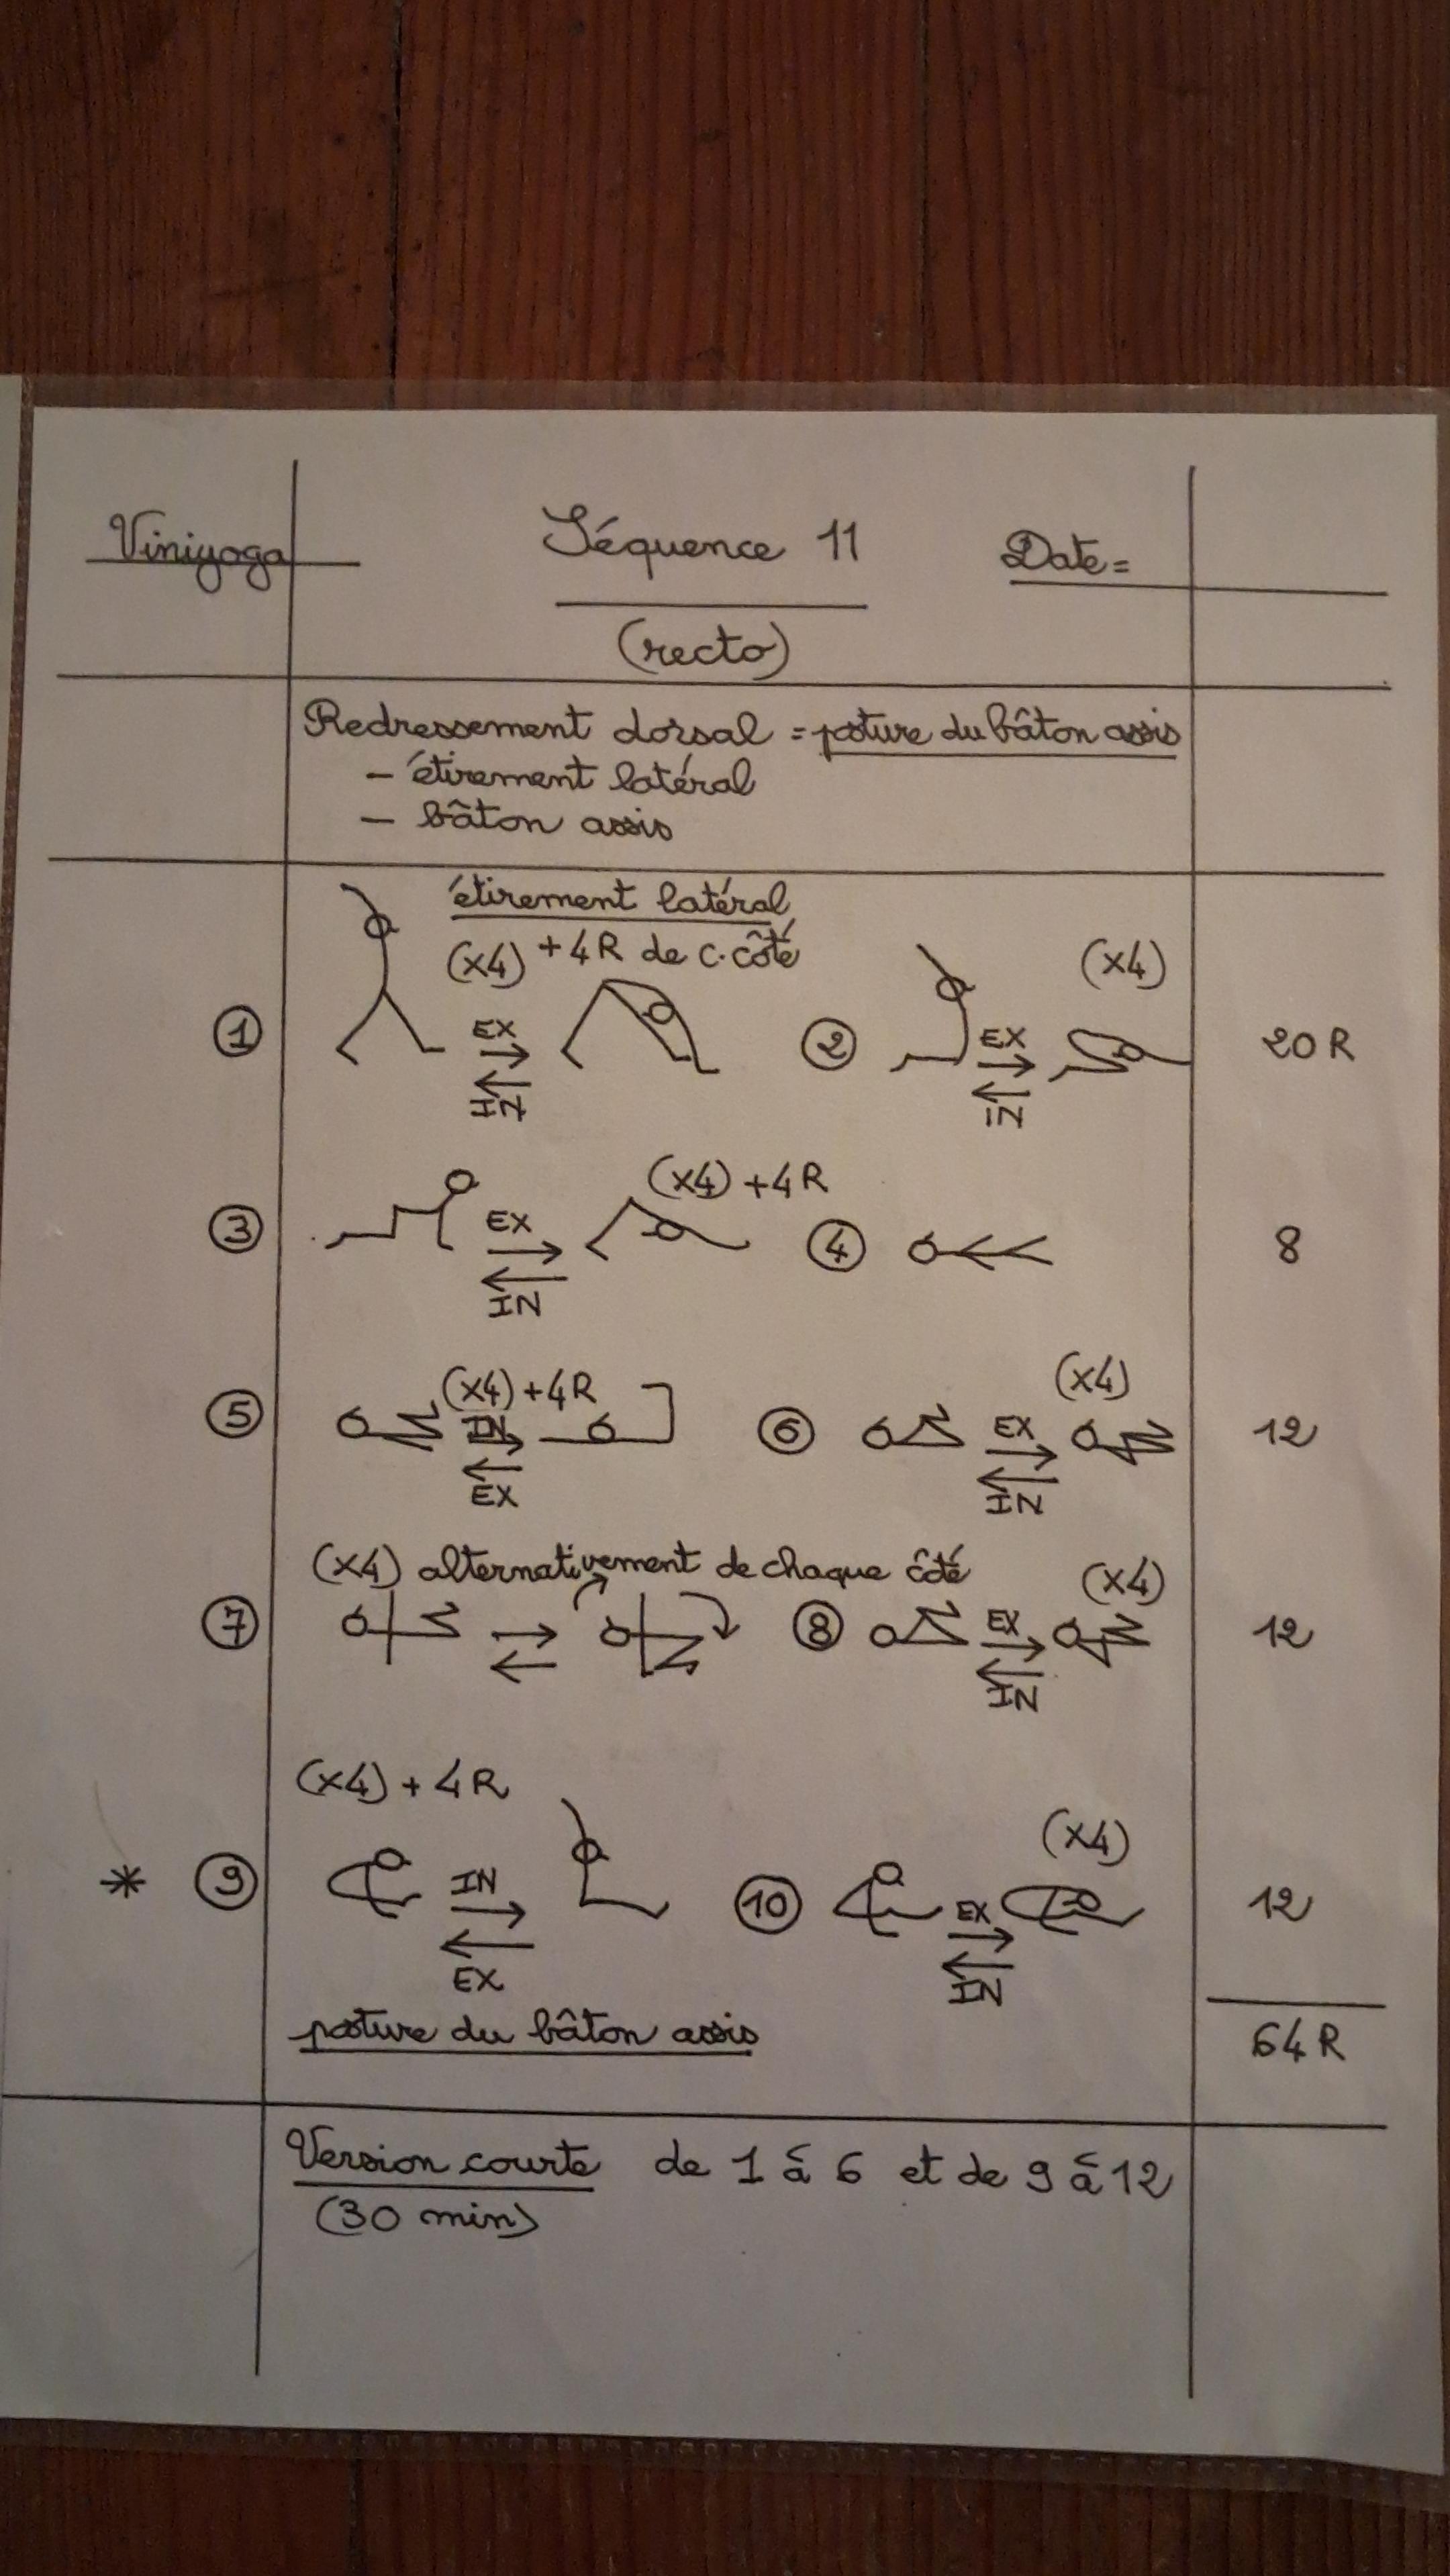 Viniyoga Séquence 11 Date=
(recto)
Redressement dorsal = posture du bâton assis
- étirement latéral
- bâton assis
étirement latéral
(x4) + 4R de c. côté (x4)
① EX IN ② EX IN 20 R
(x4) + 4R
③ EX IN ④ 8
(x4) + 4R (x4)
⑤ IN EX ⑥ EX IN 12
(x4) alternativement de chaque côté (x4)
⑦ ⑧ EX IN 12
(x4) + 4R (x4)
* ⑨ IN EX ⑩ EX IN 12
posture du bâton assis 64 R
Version courte de 1 à 6 et de 9 à 12
(30 min)